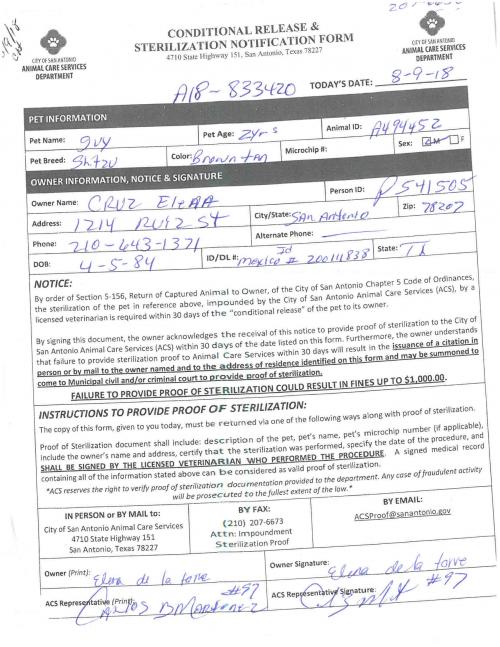 CITY OF SAN ANTONIO
ANIMAL CARE SERVICES
DEPARTMENT
CONDITIONAL RELEASE &
STERILIZATION NOTIFICATION FORM
4710 State Highway 151, San Antonio, Texas 78227
CITY OF SAN ANTONIO
ANIMAL CARE SERVICES
DEPARTMENT
A18-833420 TODAY'S DATE: 8-9-18
PET INFORMATION
Pet Name: guy Pet Age: 2yrs Animal ID: A494452
Pet Breed: Shitzu Color: Brown tan Microchip #: Sex: M F
OWNER INFORMATION, NOTICE & SIGNATURE
Owner Name: CRUZ Person ID: P541505
Address: 1214 RUIZ St City/State: SAn Antonio Zip: 78207
Phone: 210-643-1371 Alternate Phone:
DOB: 4-5-84 ID/DL #: Id mexico # 200111838 State: TX
NOTICE:
By order of Section 5-156, Return of Captured Animal to Owner, of the City of San Antonio Chapter 5 Code of Ordinances,
the sterilization of the pet in reference above, impounded by the City of San Antonio Animal Care Services (ACS), by a
licensed veterinarian is required within 30 days of the "conditional release" of the pet to its owner.
By signing this document, the owner acknowledges the receival of this notice to provide proof of sterilization to the City of
San Antonio Animal Care Services (ACS) within 30 days of the date listed on this form. Furthermore, the owner understands
that failure to provide sterilization proof to Animal Care Services within 30 days will result in the issuance of a citation in
person or by mail to the owner named and to the address of residence identified on this form and may be summoned to
come to Municipal civil and/or criminal court to provide proof of sterilization.
FAILURE TO PROVIDE PROOF OF STERILIZATION COULD RESULT IN FINES UP TO $1,000.00.
INSTRUCTIONS TO PROVIDE PROOF OF STERILIZATION:
The copy of this form, given to you today, must be returned via one of the following ways along with proof of sterilization.
Proof of Sterilization document shall include: description of the pet, pet's name, pet's microchip number (if applicable),
include the owner's name and address, certify that the sterilization was performed, specify the date of the procedure, and
SHALL BE SIGNED BY THE LICENSED VETERINARIAN WHO PERFORMED THE PROCEDURE. A signed medical record
containing all of the information stated above can be considered as valid proof of sterilization.
*ACS reserves the right to verify proof of sterilization documentation provided to the department. Any case of fraudulent activity
will be prosecuted to the fullest extent of the law.*
IN PERSON or BY MAIL to:
City of San Antonio Animal Care Services
4710 State Highway 151
San Antonio, Texas 78227
BY FAX:
(210) 207-6673
Attn: Impoundment
Sterilization Proof
BY EMAIL:
ACSProof@sanantonio.gov
Owner (Print): Elena de la torre Owner Signature: Elena de la torre
ACS Representative (Print): CARlOS D MARtinez #97 ACS Representative Signature: #97